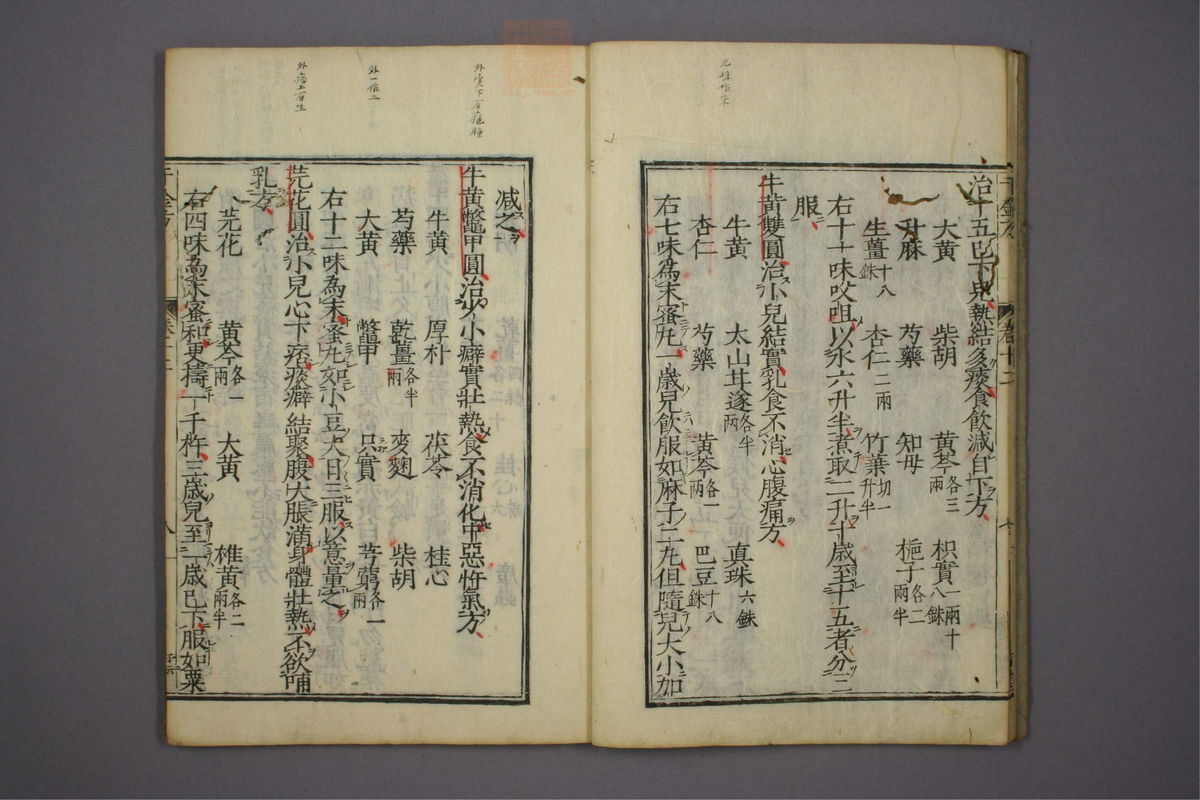 治十五已下兒熱結多痰食飲減自下方
大黃 柴胡 黃芩各三兩 枳實一兩十八銖
升麻 芍藥 知母 梔子各二兩半
生薑十八銖 杏仁二兩 竹葉切一升半
右十一味㕮咀以水六升半煮取二升十歲至十五者分三
服
牛黃雙圓治小兒結實乳食不消心腹痛方
牛黃 太山甘遂各半兩 真珠六銖
杏仁 芍藥 黃芩各一兩 巴豆十八銖
右七味為末蜜丸一歲兒飲服如麻子二丸但隨兒大小加
減之
牛黃鱉甲圓治少小癖實壯熱食不消化中惡忤氣方
牛黃 厚朴 茯苓 桂心
芍藥 乾薑各半兩 麥麴 柴胡
大黃 鱉甲 只實 芎藭各一兩
右十二味為末蜜丸如小豆大日三服以意量之
芫花圓治小兒心下痞痰癖結聚腹大脹滿身體壯熱不欲哺
乳方
芫花 黃芩各一兩 大黃 椎黃各二兩半
右四味為末蜜和更擣一千杵三歲兒至一歲已下服如粟
外一作二